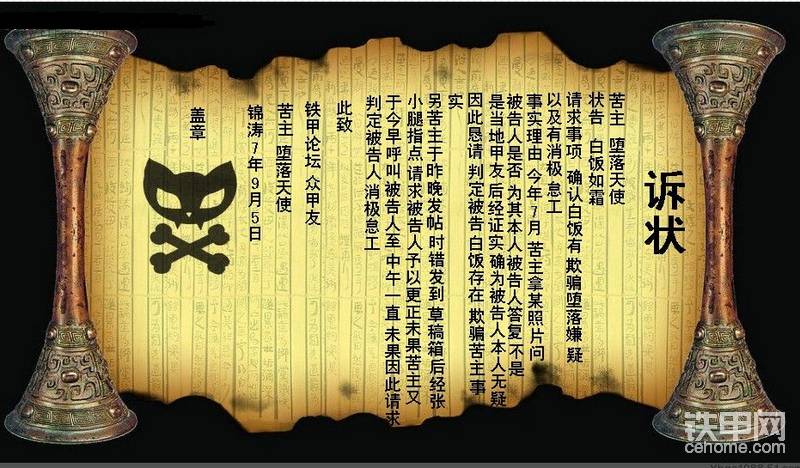 诉状
苦主 堕落天使
状告 白饭如霜
请求事项 确认白饭有欺骗堕落嫌疑
以及有消极怠工
事实理由 今年7月 苦主拿某照片问
被告人是否 为其本人被告人答复不是
是当地甲友 后经证实 确为被告人本人无疑
因此恳请 判定被告 白饭存在 欺骗苦主事
实
另苦主于昨晚发帖 时错发到 草稿箱后经张
小腿指点 请求被告人予以更正未果苦主又
于今早呼叫被告人至 中午一直 未果因此请求
判定被告人消极怠工
此致
铁甲论坛 众甲友
苦主 堕落天使
锦涛7年9月5日
盖章
铁甲网
cehome.com